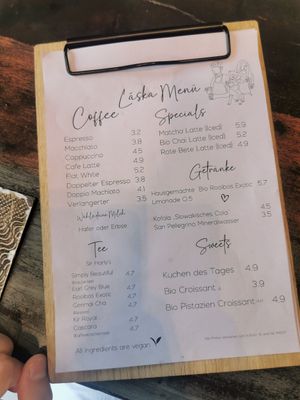 Láska Menü
Coffee
Espresso 3.2
Macchiato 3.8
Cappuccino 4.5
Cafe Latte 4.9
Flat White 5.2
Doppelter Espresso 3.8
Doppio Macchiato 4.1
Verlängerter 3.5
Milch
Hafer oder Erbse
Tee
Sir Harly's
Simply Beautiful 4.7
Earl Grey Blue 4.7
Rooibos Exotic 4.7
Genmai Cha 4.7
Kir Royal 4.7
Cascara 4.7
All ingredients are vegan
Specials
Matcha Latte (Iced) 5.9
Bio Chai Latte (Iced) 5.2
Rote Bete Latte (Iced) 4.9
Getränke
Hausgemachte Bio Rooibos Exotic 5.7
Limonade 0.5
Kofola, Slowakisches Cola 4.5
San Pellegrino Mineralwasser 3.5
Sweets
Kuchen des Tages 4.9
Bio Croissant 3.9
Bio Pistazien Croissant 4.9